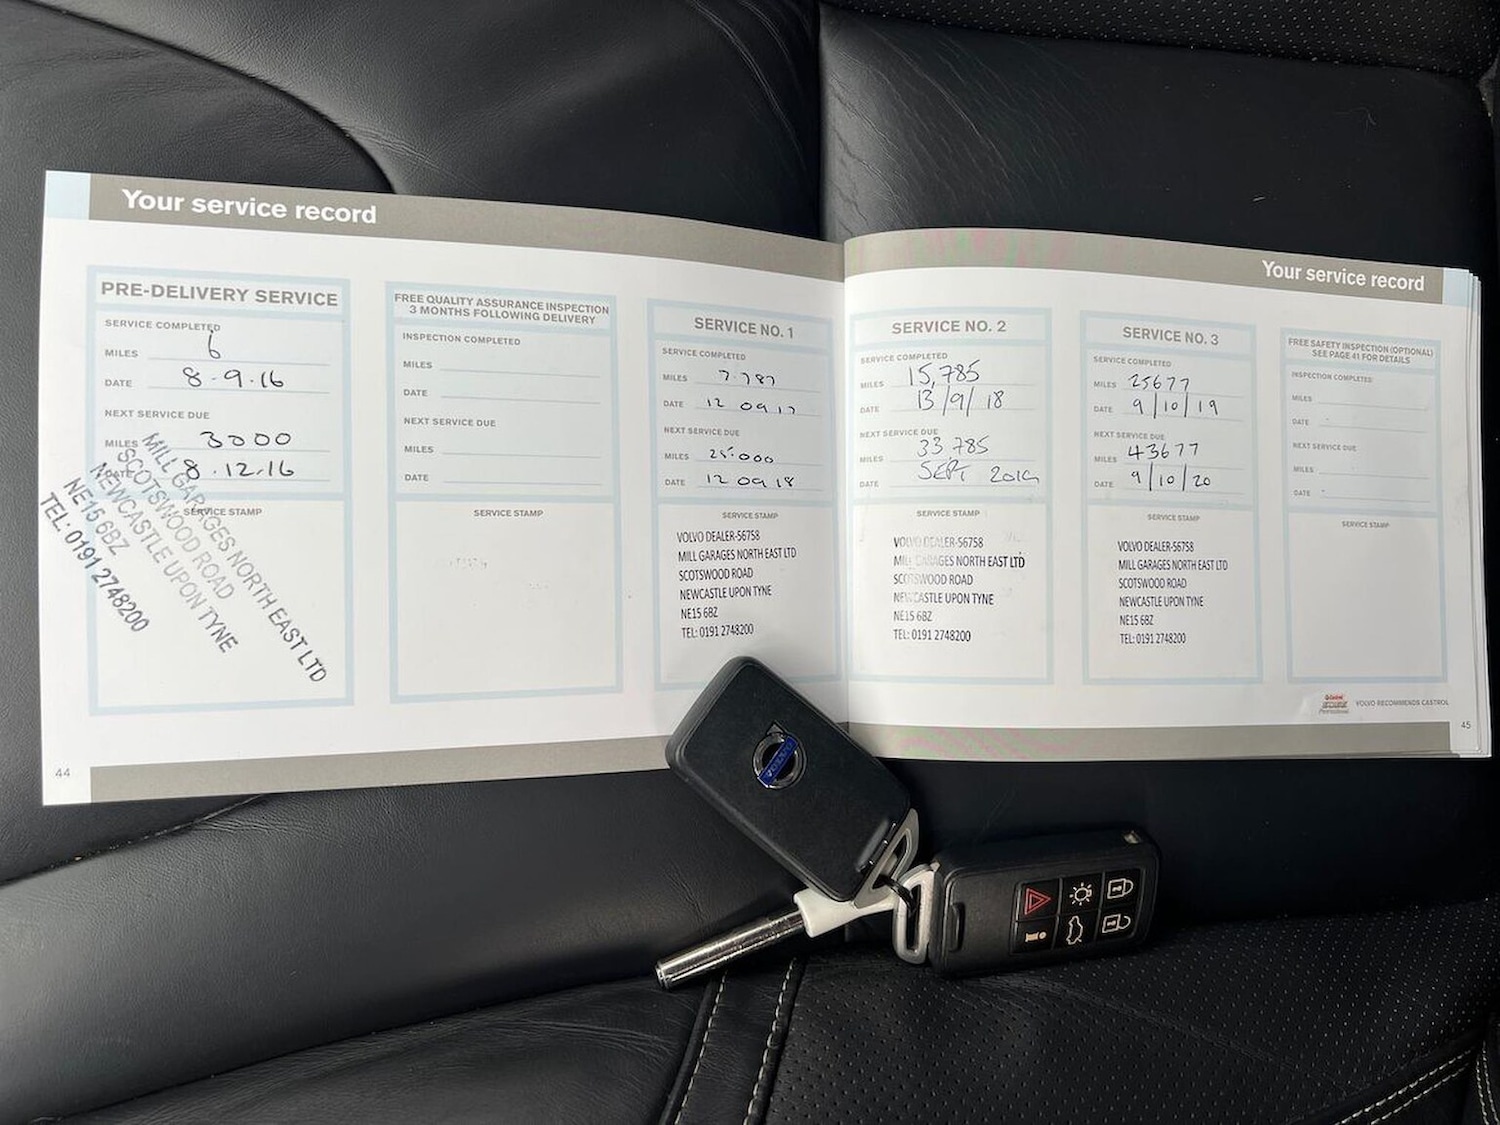 Your service record
PRE-DELIVERY SERVICE
SERVICE COMPLETED
MILES 6
DATE 8-9-16
NEXT SERVICE DUE
MILES 3000
DATE 8.12.16
SERVICE STAMP
MILL GARAGES NORTH EAST LTD
SCOTSWOOD ROAD
NEWCASTLE UPON TYNE
NE15 6BZ
TEL: 0191 2748200
44
FREE QUALITY ASSURANCE INSPECTION
3 MONTHS FOLLOWING DELIVERY
INSPECTION COMPLETED
MILES
DATE
NEXT SERVICE DUE
MILES
DATE
SERVICE STAMP
SERVICE NO. 1
SERVICE COMPLETED
MILES 7.787
DATE 12 09 17
NEXT SERVICE DUE
MILES 25.000
DATE 12 09 18
SERVICE STAMP
VOLVO DEALER-56758
MILL GARAGES NORTH EAST LTD
SCOTSWOOD ROAD
NEWCASTLE UPON TYNE
NE15 6BZ
TEL: 0191 2748200
Your service record
SERVICE NO. 2
SERVICE COMPLETED
MILES 15,785
DATE 13/9/18
NEXT SERVICE DUE
MILES 33,785
DATE SEPT 2019
SERVICE STAMP
VOLVO DEALER-56758
MILL GARAGES NORTH EAST LTD
SCOTSWOOD ROAD
NEWCASTLE UPON TYNE
NE15 6BZ
TEL: 0191 2748200
SERVICE NO. 3
SERVICE COMPLETED
MILES 25677
DATE 9/10/19
NEXT SERVICE DUE
MILES 43677
DATE 9/10/20
SERVICE STAMP
VOLVO DEALER-56758
MILL GARAGES NORTH EAST LTD
SCOTSWOOD ROAD
NEWCASTLE UPON TYNE
NE15 6BZ
TEL: 0191 2748200
FREE SAFETY INSPECTION (OPTIONAL)
SEE PAGE 41 FOR DETAILS
INSPECTION COMPLETED
MILES
DATE
NEXT SERVICE DUE
MILES
DATE
SERVICE STAMP
Castrol
EDGE
Professional
VOLVO RECOMMENDS CASTROL
45
VOLVO